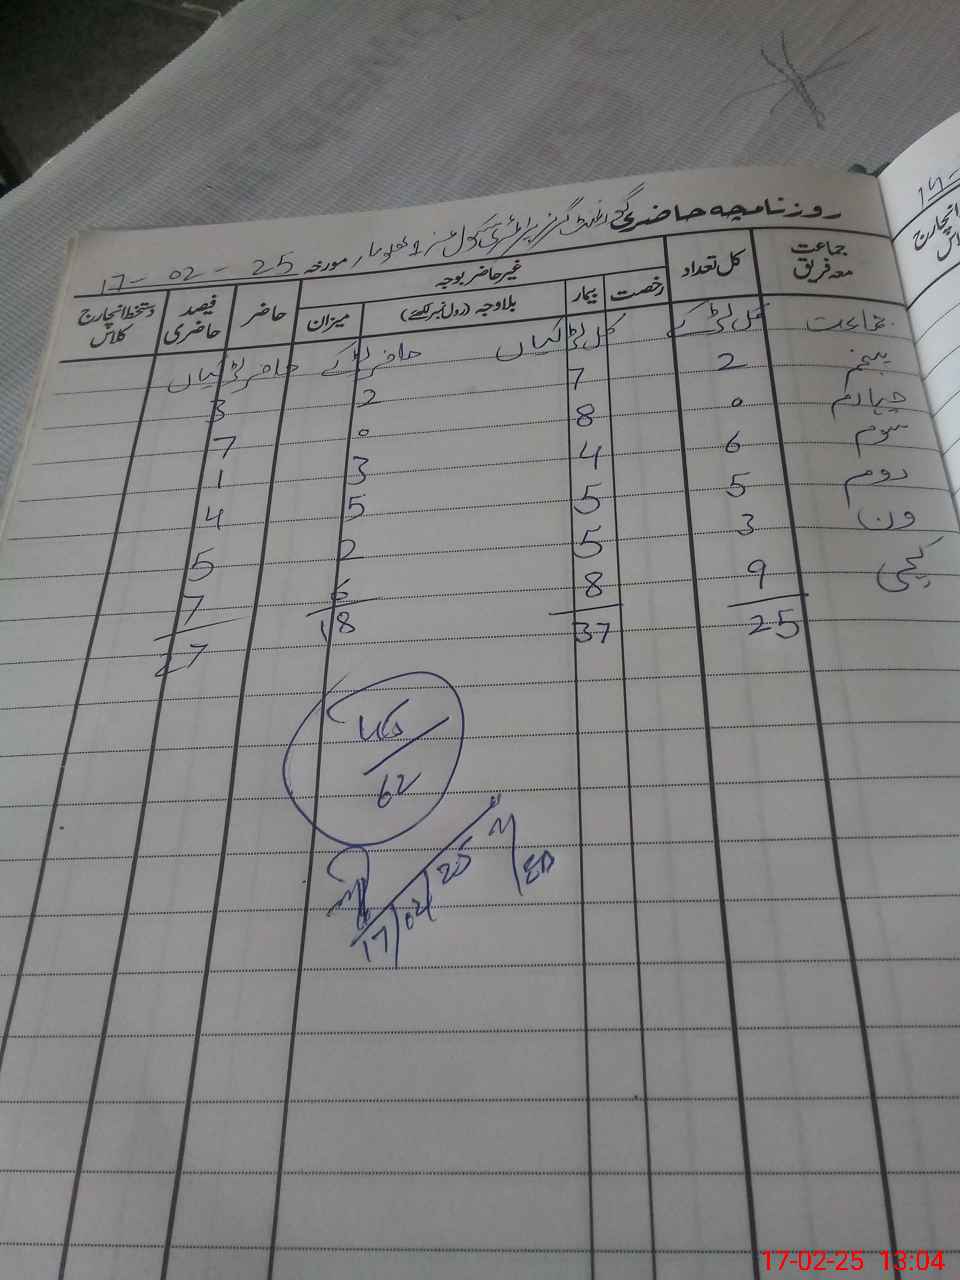 روزنامچہ حاضری گورنمنٹ گرلز پرائمری سکول مورخہ 25 - 02 - 17
جماعت معہ فریق کل تعداد غیر حاضر بوجہ حاضر فیصد حاضری دستخط انچارج کلاس
رخصت بیمار بلاوجہ (رول نمبر لکھئے) میزان
جماعت کل لڑکے کل لڑکیاں حاضر لڑکے حاضر لڑکیاں
پنجم 2 7 2 3
چہارم 0 8 0 7
سوم 6 4 3 1
دوم 5 5 5 4
ون 3 5 2 5
کچی 9 8 6 7
25 37 18 27
62
17/02/25
انچارج
17-02-25 13:04